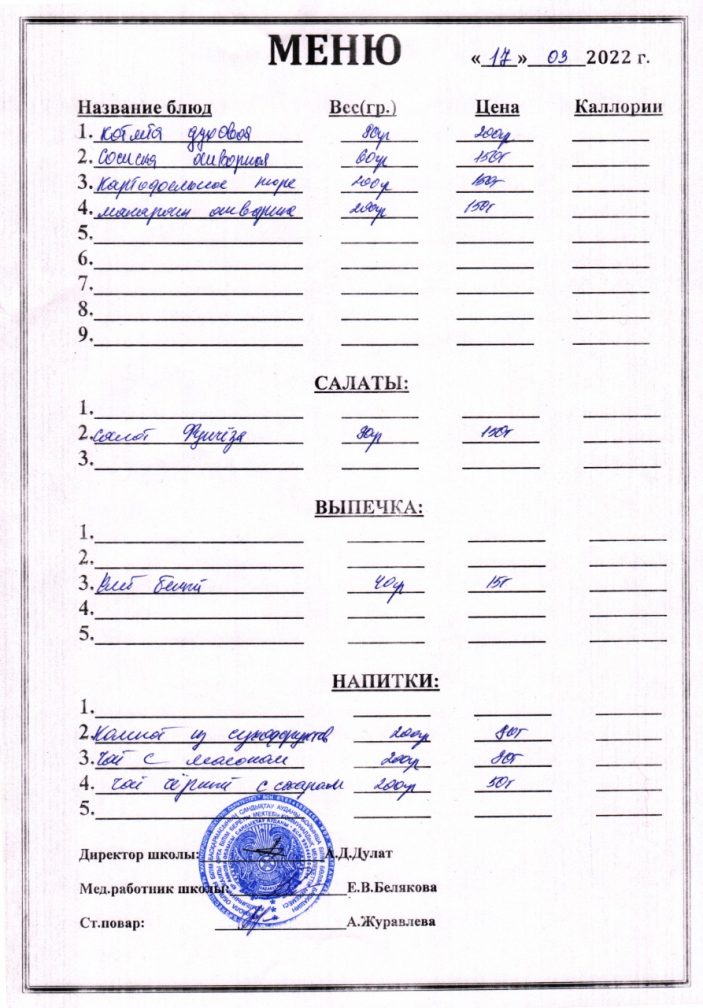 МЕНЮ «17» 03 2022 г.
Название блюд Вес(гр.) Цена Каллории
1. котлета 90гр 200
2. Сосиска отварная 60гр 150т
3. Картофельное пюре 200гр 150т
4. макароны отварные 200гр 150т
5.
6.
7.
8.
9.
САЛАТЫ:
1.
2. салат Фунчёза 90гр 150т
3.
ВЫПЕЧКА:
1.
2.
3. Хлеб белый 40гр 15т
4.
5.
НАПИТКИ:
1.
2. Компот из сухофруктов 200гр 80т
3. Чай с молоком 200гр 80т
4. чай чёрный с сахаром 200гр 50т
5.
Директор школы: А.Д.Дулат
Мед.работник школы: Е.В.Белякова
Ст.повар: А.Журавлева